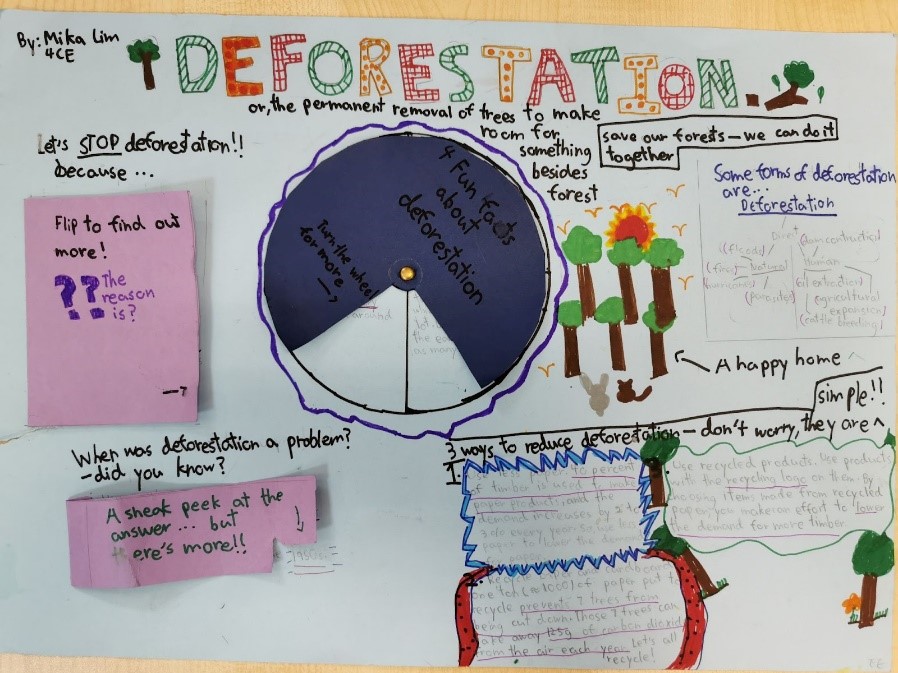 By: Mika Lim
4CE
DEFORESTATION.
or, the permanent removal of trees to make
room for
something
besides
forest
save our forests – we can do it
together
Let's STOP deforestation!!
because ...
Flip to find out
more!
?? The
reason
is?
4 Fun facts
about
deforestation
Turn the wheel
for more
Some forms of deforestation
are...
Deforestation
Direct
(floods)
(fires) – Natural
(parasites)
Human
agricultural
expansion/
(cattle breeding)
A happy home
simple!!
When was deforestation a problem?
– did you know?
A sneak peek at the
answer ... but
there's more!!
1950s
3 ways to reduce deforestation – don't worry, they are ^
1.
percent
of timber is used to make
paper products, and the
demand increases by 2 to
3% every year. So, use less
Use recycled products. Use products
with the recycling logo on them. By
choosing items made from recycled
paper, you make an effort to lower
the demand for more timber
2.
Recycle paper and cardboard
one ton of paper put to
recycle prevents 17 trees from
being cut down. Those 17 trees can
take away of carbon dioxide
from the air each year. Let's all
recycle!